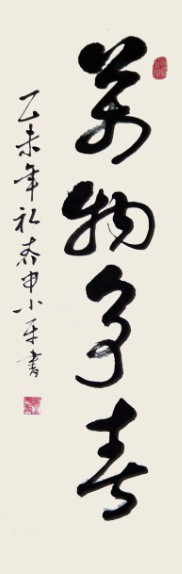 萬物争春
乙未年社春申小平書